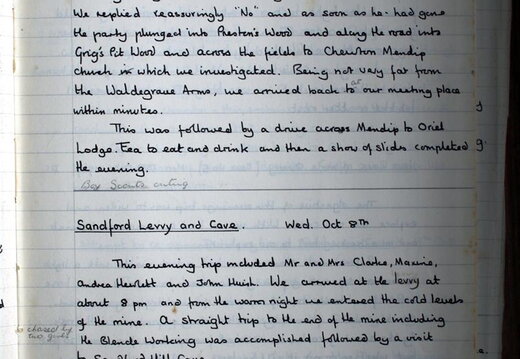 We replied reassuringly "No" and as soon as he had gone
the party plunged into Preston's Wood and along the road into
Grig's Pit Wood and across the fields to Chewton Mendip
church in which we investigated. Being not very far from
the Waldegrave Arms, we arrived back to at our meeting place
within minutes.
This was followed by a drive across Mendip to Oriel
Lodge. Tea to eat and drink and then a show of slides completed
the evening.
Boy Scouts outing
Sandford Levvy and Cave. Wed. Oct 8th
This evening trip included Mr and Mrs Clarke, Maxine,
Andrea Hewlett and John Huish. We arrived at the levvy at
about 8 pm and from the warm night we entered the cold levels
of the mine. A straight trip to the end of the mine including
so chased by
two girls
the Blende Working was accomplished followed by a visit
to Sandford Hill Cave